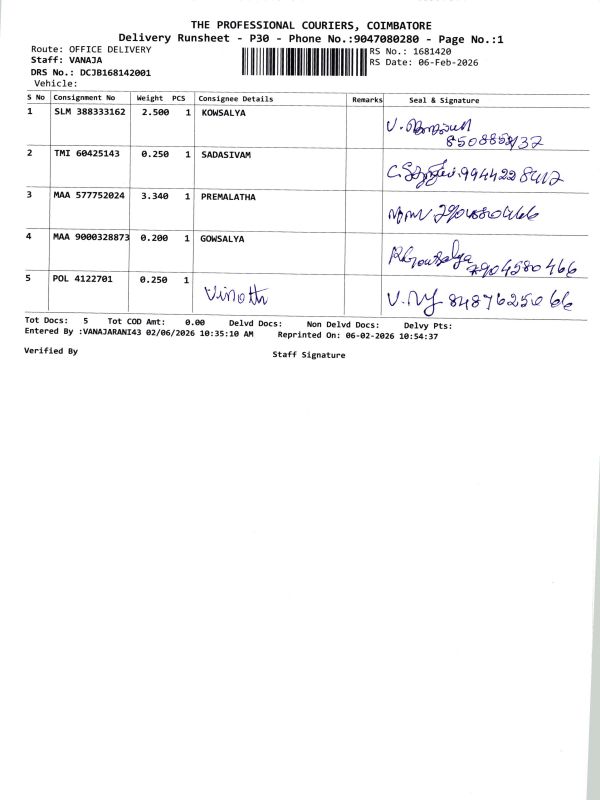 THE PROFESSIONAL COURIERS, COIMBATORE
Delivery Runsheet - P30 - Phone No.:9047080280 - Page No.:1
Route: OFFICE DELIVERY
RS No.: 1681420
Staff: VANAJA
RS Date: 06-Feb-2026
DRS No.: DCJB168142001
Vehicle:
S No Consignment No Weight PCS Consignee Details Remarks Seal & Signature
1 SLM 388333162 2.500 1 KOWSALYA
2 TMI 60425143 0.250 1 SADASIVAM
3 MAA 577752024 3.340 1 PREMALATHA
4 MAA 9000328873 0.200 1 GOWSALYA
7904580466
5 POL 4122701 0.250 1 Vinoth
Tot Docs: 5 Tot COD Amt: 0.00 Delvd Docs: Non Delvd Docs: Delvy Pts:
Entered By :VANAJARANI43 02/06/2026 10:35:10 AM Reprinted On: 06-02-2026 10:54:37
Verified By
Staff Signature